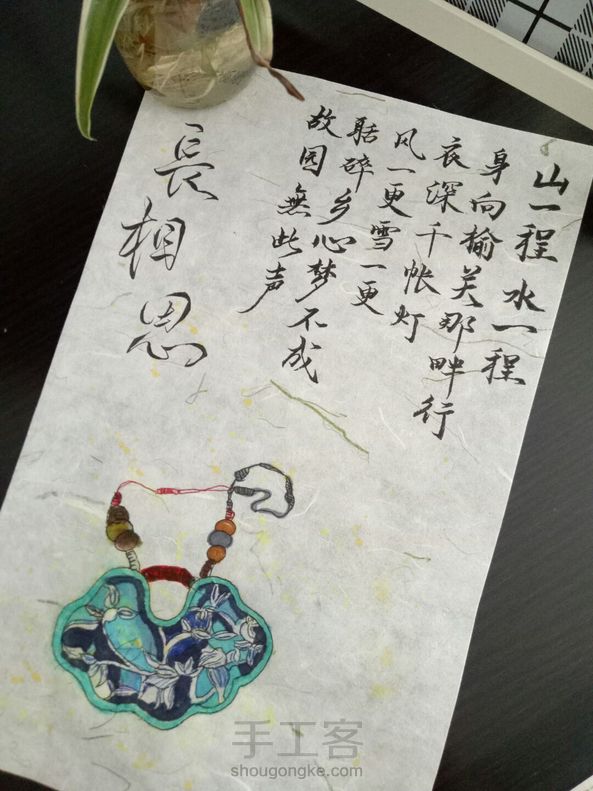 山一程 水一程
身向榆关那畔行
衣深千帐灯
风一更雪一更
聒碎乡心梦不成
故园無此声
長相思
手工客
shougongke.com